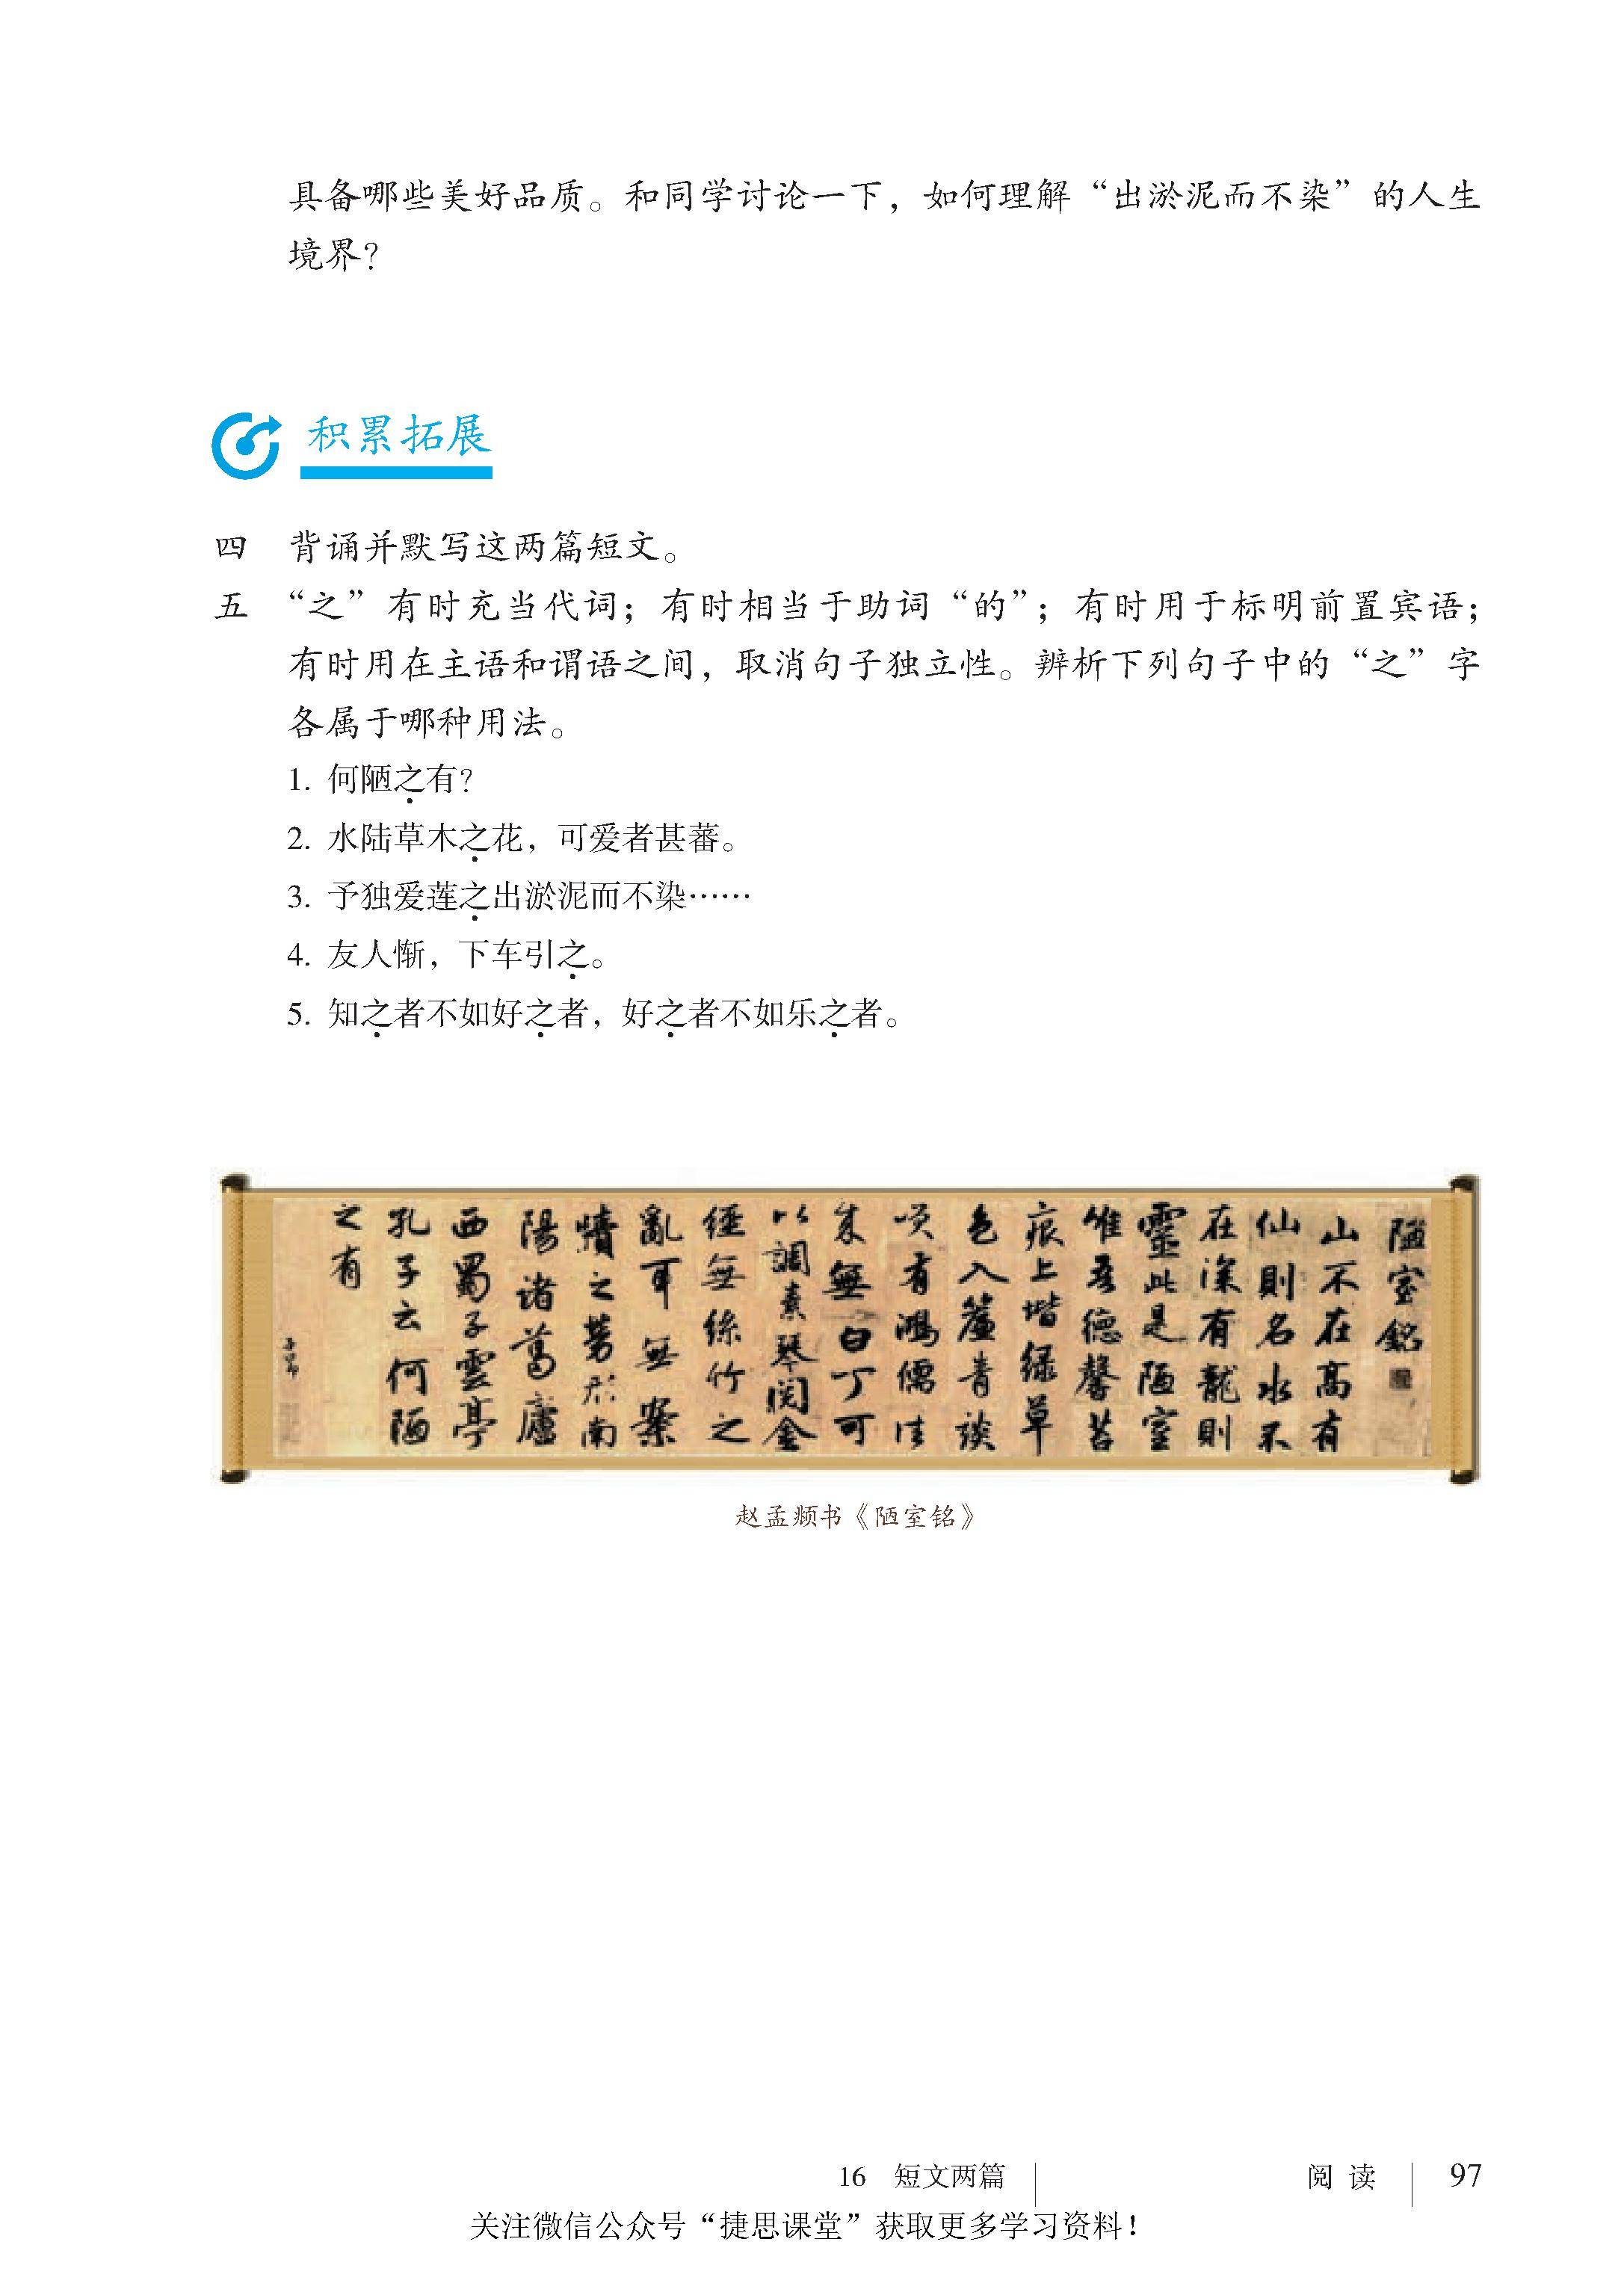 具备哪些美好品质。和同学讨论一下，如何理解“出淤泥而不染”的人生
境界？
积累拓展
四　背诵并默写这两篇短文。
五　“之”有时充当代词；有时相当于助词“的”；有时用于标明前置宾语；
有时用在主语和谓语之间，取消句子独立性。辨析下列句子中的“之”字
各属于哪种用法。
1. 何陋之有？
2. 水陆草木之花，可爱者甚蕃。
3. 予独爱莲之出淤泥而不染……
4. 友人惭，下车引之。
5. 知之者不如好之者，好之者不如乐之者。
陋室銘
山不在高有
仙則名水不
在深有龍則
靈此是陋室
惟吾德馨苔
痕上堦緑草
色入簾青談
笑有鴻儒往
来無白丁可
以調素琴閲金
經無絲竹之
亂耳無案
牘之勞形南
陽諸葛廬
西蜀子雲亭
孔子云何陋
之有
子昂
赵孟頫书《陋室铭》
16　短文两篇
阅读
97
关注微信公众号“捷思课堂”获取更多学习资料！